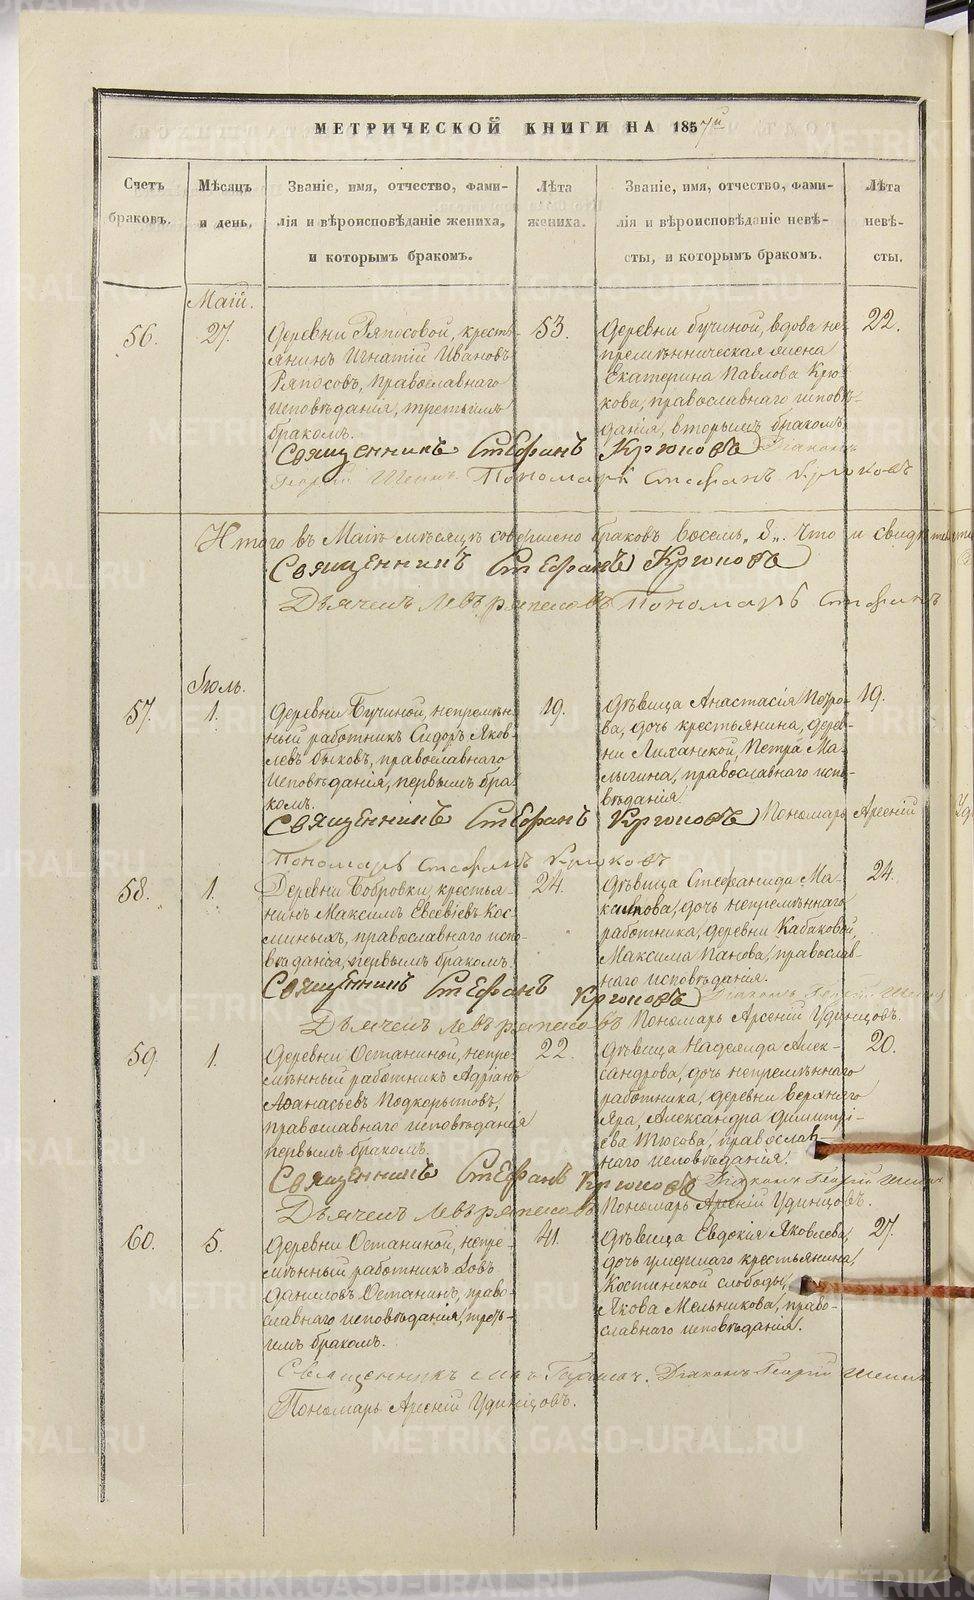 МЕТРИЧЕСКОЙ КНИГИ НА 1857й
Счетъ браковъ.
Мѣсяцъ и день.
Званіе, имя, отчество, фами-
лія и вѣроисповѣданіе жениха,
и которымъ бракомъ.
Лѣта жениха.
Званіе, имя, отчество, фами-
лія и вѣроисповѣданіе невѣ-
сты, и которымъ бракомъ.
Лѣта невѣ-
сты.
Маій.
56. 27.
Деревни Ряпосовой, кресть-
янинъ Игнатій Ивановъ
Ряпосовъ, православнаго
исповѣданія, третьимъ
бракомъ.
53.
Деревни Бучиной, вдова не-
премѣнническая жена
Екатерина Павлова Крю-
кова, православнаго исповѣ-
данія, вторымъ бракомъ.
22.
Священникъ Стефанъ Крюковъ Діаконъ
Георгій Пономарь Стефанъ Крюковъ
Итого въ Маіѣ мѣсяцѣ совершено браковъ восемь, 8. Что и
Священникъ Стефанъ Крюковъ
Дьячекъ Левъ Ряпосовъ Пономарь Стефанъ
Іюль.
57. 1.
Деревни Бучиной, непремѣн-
ный работникъ Сидоръ Яков-
левъ Быковъ, православнаго
исповѣданія, первымъ бра-
комъ.
19.
Дѣвица Анастасія Петро-
ва, дочь крестьянина, дерев-
ни Лиханской, Петра Ма-
лыгина, православнаго испо-
вѣданія.
19.
Священникъ Стефанъ Крюковъ Пономарь Арсеній
Пономарь Стефанъ Крюковъ
58. 1.
Деревни Бобровки, крестья-
нинъ Максимъ Евсевіевъ Кос-
миныхъ, православнаго испо-
вѣданія, первымъ бракомъ.
24.
Дѣвица Стефанида Ма-
ксимова, дочь непремѣннаго
работника, деревни Кабаковой,
Максима Панова, православ-
наго исповѣданія.
24.
Священникъ Стефанъ Крюковъ Діаконъ Георгій
Дьячекъ Левъ Ряпосовъ Пономарь Арсеній Удинцовъ.
59. 1.
Деревни Останиной, непре-
мѣнный работникъ Адріанъ
Аѳанасьевъ Подкорытовъ,
православнаго исповѣданія
первымъ бракомъ.
22.
Дѣвица Надежда Алек-
сандрова, дочь непремѣннаго
работника, деревни Верхняго
Яра, Александра Димитрі-
ева Тюсова, православ-
наго исповѣданія.
20.
Священникъ Стефанъ Крюковъ Діаконъ Георгій
Дьячекъ Левъ Ряпосовъ Пономарь Арсеній Удинцовъ.
60. 5.
Деревни Останиной, непре-
мѣнный работникъ Іовъ
Даниловъ Останинъ, право-
славнаго исповѣданія, треть-
имъ бракомъ.
41.
Дѣвица Евдокія Яковлева,
дочь умершаго крестьянина,
Костинской слободы,
Якова Мельникова, право-
славнаго исповѣданія.
27.
Священникъ Діаконъ Георгій
Пономарь Арсеній Удинцовъ.
METRIKI.GASO-URAL.RU